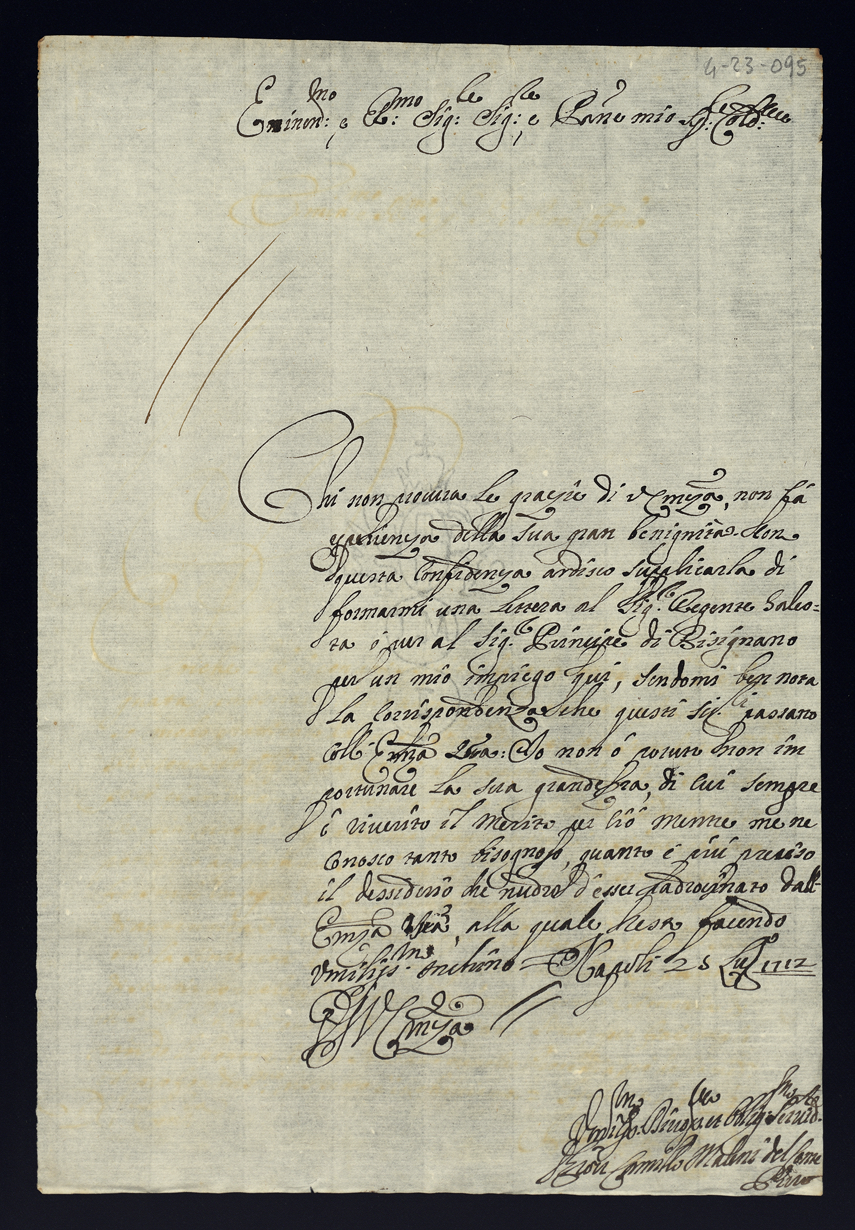 4-23-095
Eminen:mo e R:mo Sig:re Sig:re e Prone mio Sig:re Col:mo
Chi non prova le grazie di V Emza, non fà
sperienza della sua gran benignità. Con
questa Confidenza ardisco supplicarla di
formarmi una lettera al Sig.r Regente
ta ò per al Sig.r Principe di Bisignano
per un mio impiego quì, sendomi ben nota
la Corrispondenza che questi Sig.ri passano
coll' Emza Vra: Io non ò potuto non im
portunare la sua grandezza, di cui sempre
ò riverito il merito per ciò mentre me ne
conosco tanto bisognoso, quanto è più preciso
il dessiderio che nudro d'esser padrocinato dall'
Emza Vra, alla quale resto facendo
umiliss.mo inchino = Napoli 25 Lug.o 1712
D V Emza
Umiliss.mo Divo.mo et Oblig.mo Servid.re
Camillo del